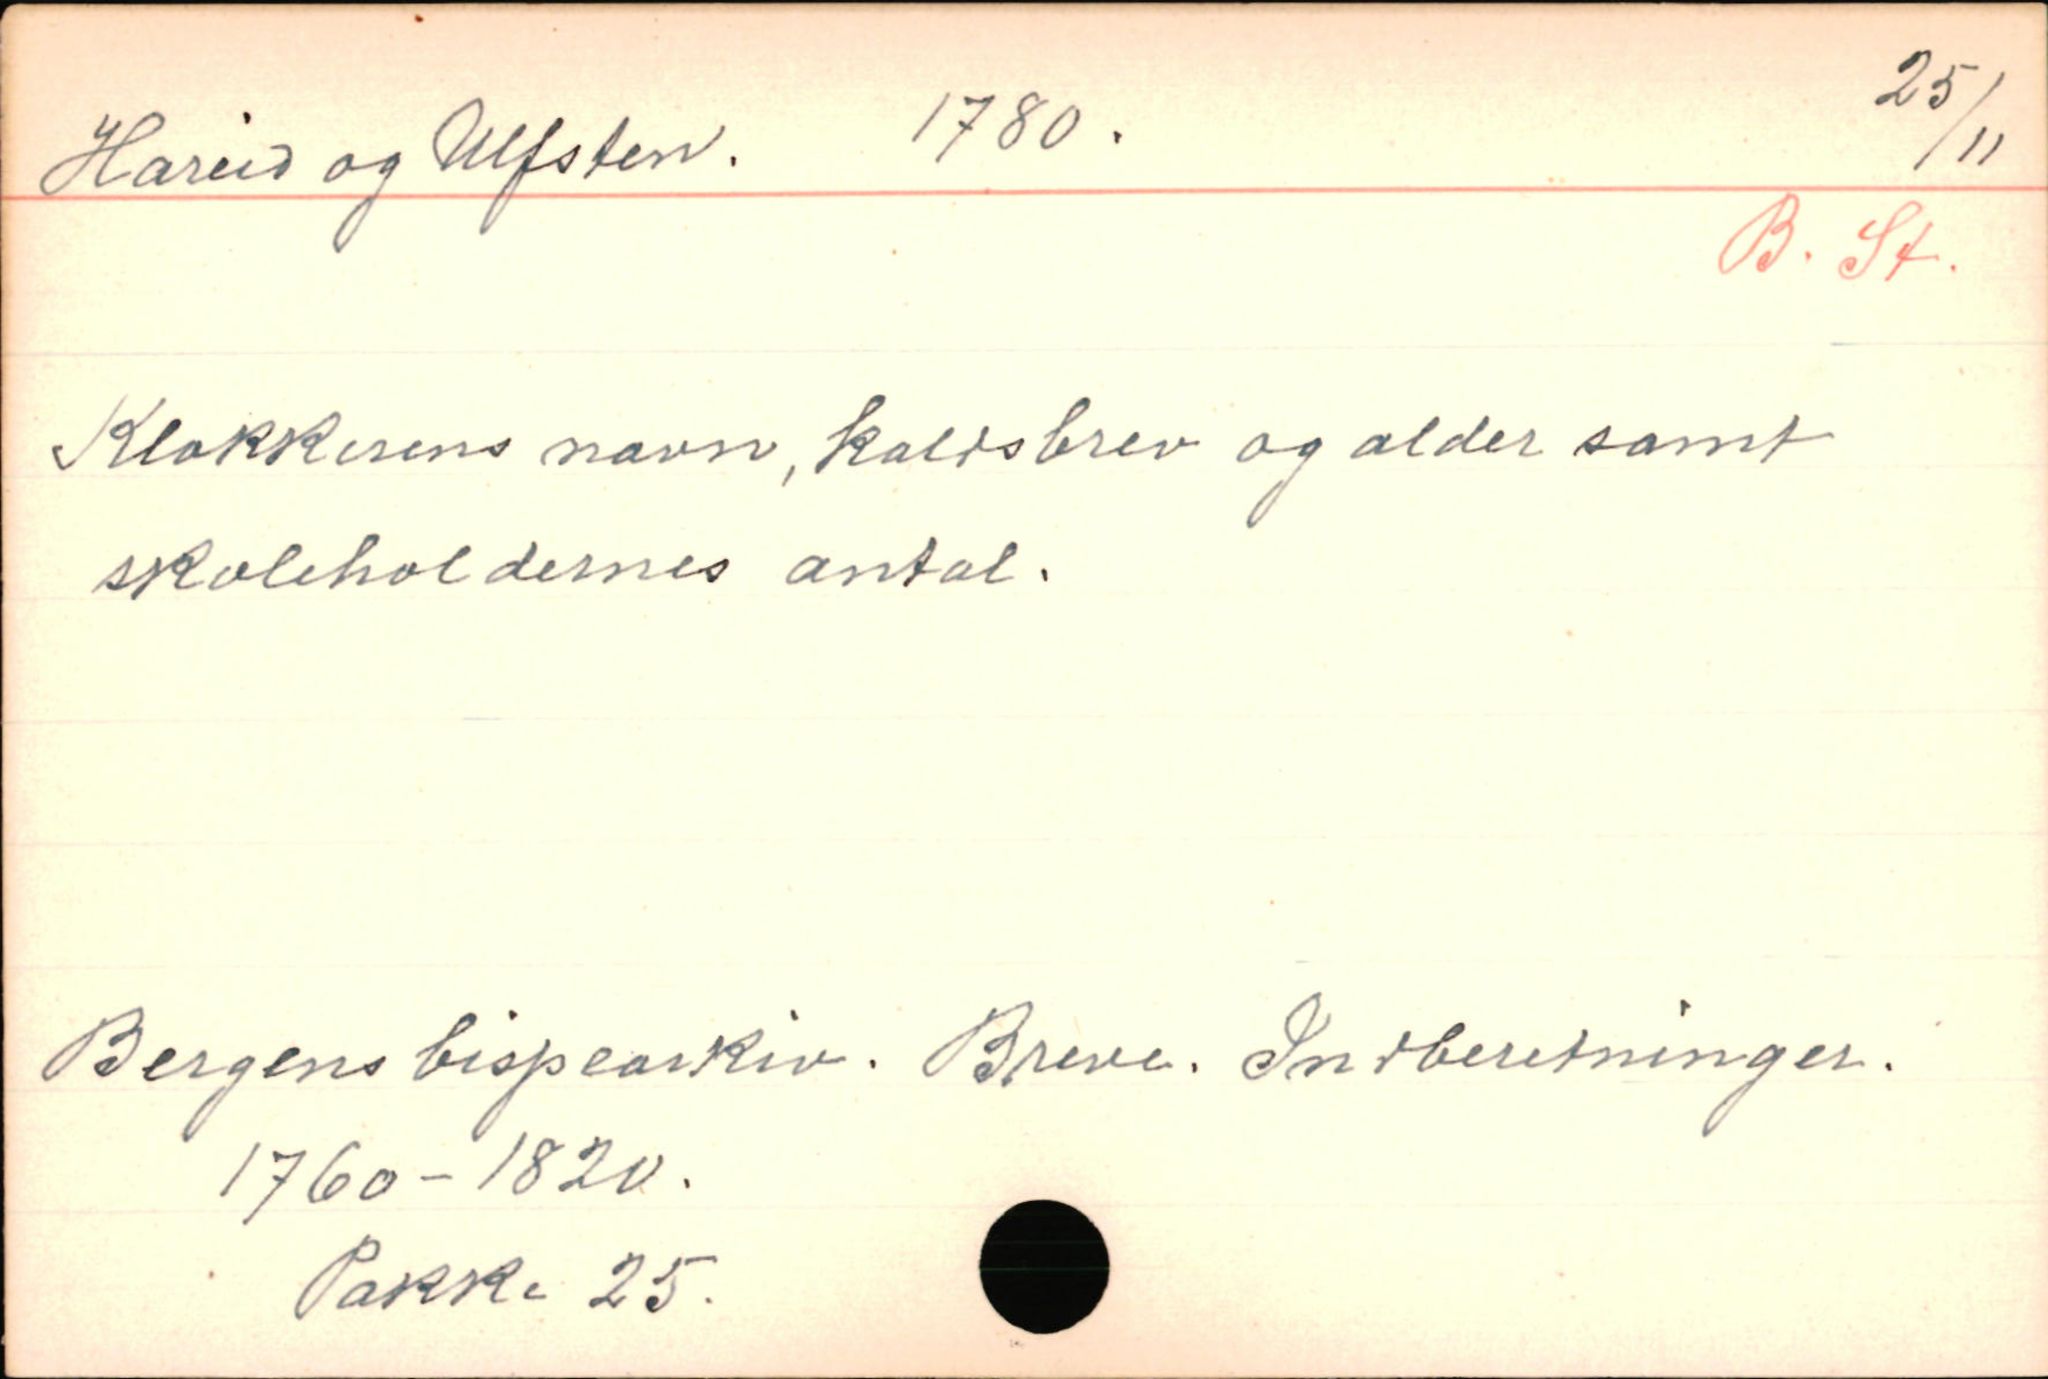 Hareid og Ulfsten. 1780. 25/11
B. St.
Klokkerens navn, kaldsbrev og alder samt
skoleholdernes antal.
Bergens bispearkiv. Breve. Indberetninger.
1760-1820.
Pakke 25.